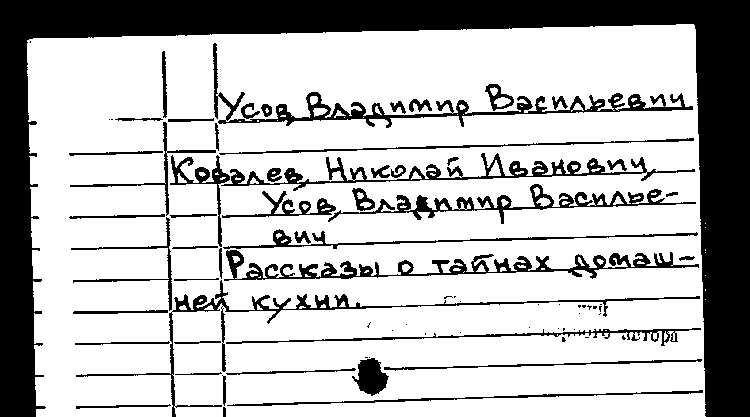 Усов, Владимир Васильевич
Ковалев, Николай Иванович,
Усов, Владимир Василье-
вич.
Рассказы о тайнах домаш-
ней кухни.
автора